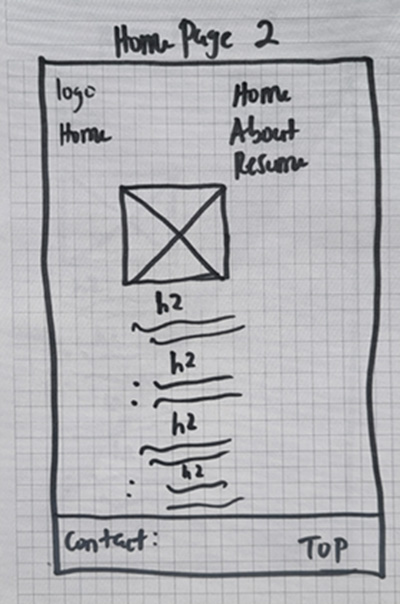 Home Page 2
logo
Home
Home
About
Resume
h2
h2
h2
h2
Contact:
TOP